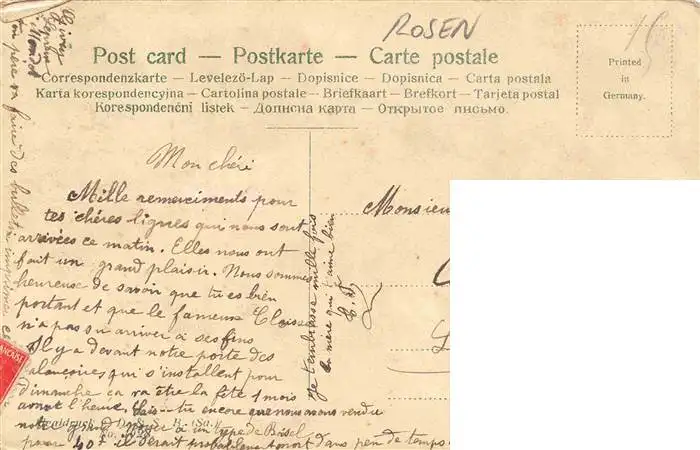 ROSEN
15
Post card — Postkarte — Carte postale
Correspondenzkarte — Levelező-Lap — Dopisnice — Dopisnica — Carta postala
Karta korespondencyjna — Cartolina postale — Briefkaart — Brefkort — Tarjeta postal
Korespondenční listek — Дописна карта — Открытое письмо.
Printed
in
Germany.
Mon chéri
Mille remerciments pour
tes chères lignes qui nous sont
arrivées ce matin. Elles nous ont
fait un grand plaisir. Nous sommes
heureuse de savoir que tu es bien
portant et que le fameux
n'a pas su arriver à ses fins
Il y a devant notre porte des
balançoires qui s'installent pour
dimanche ça va être la fête 1 mois
avant l'heure. tu encore que nous avons vendu
notre grand à un type de
pour 40f il dans peu de temps
Je t'embrasse mille fois
ta mère qui t'aime bien
ton père va faire des bulletin
Monsieu